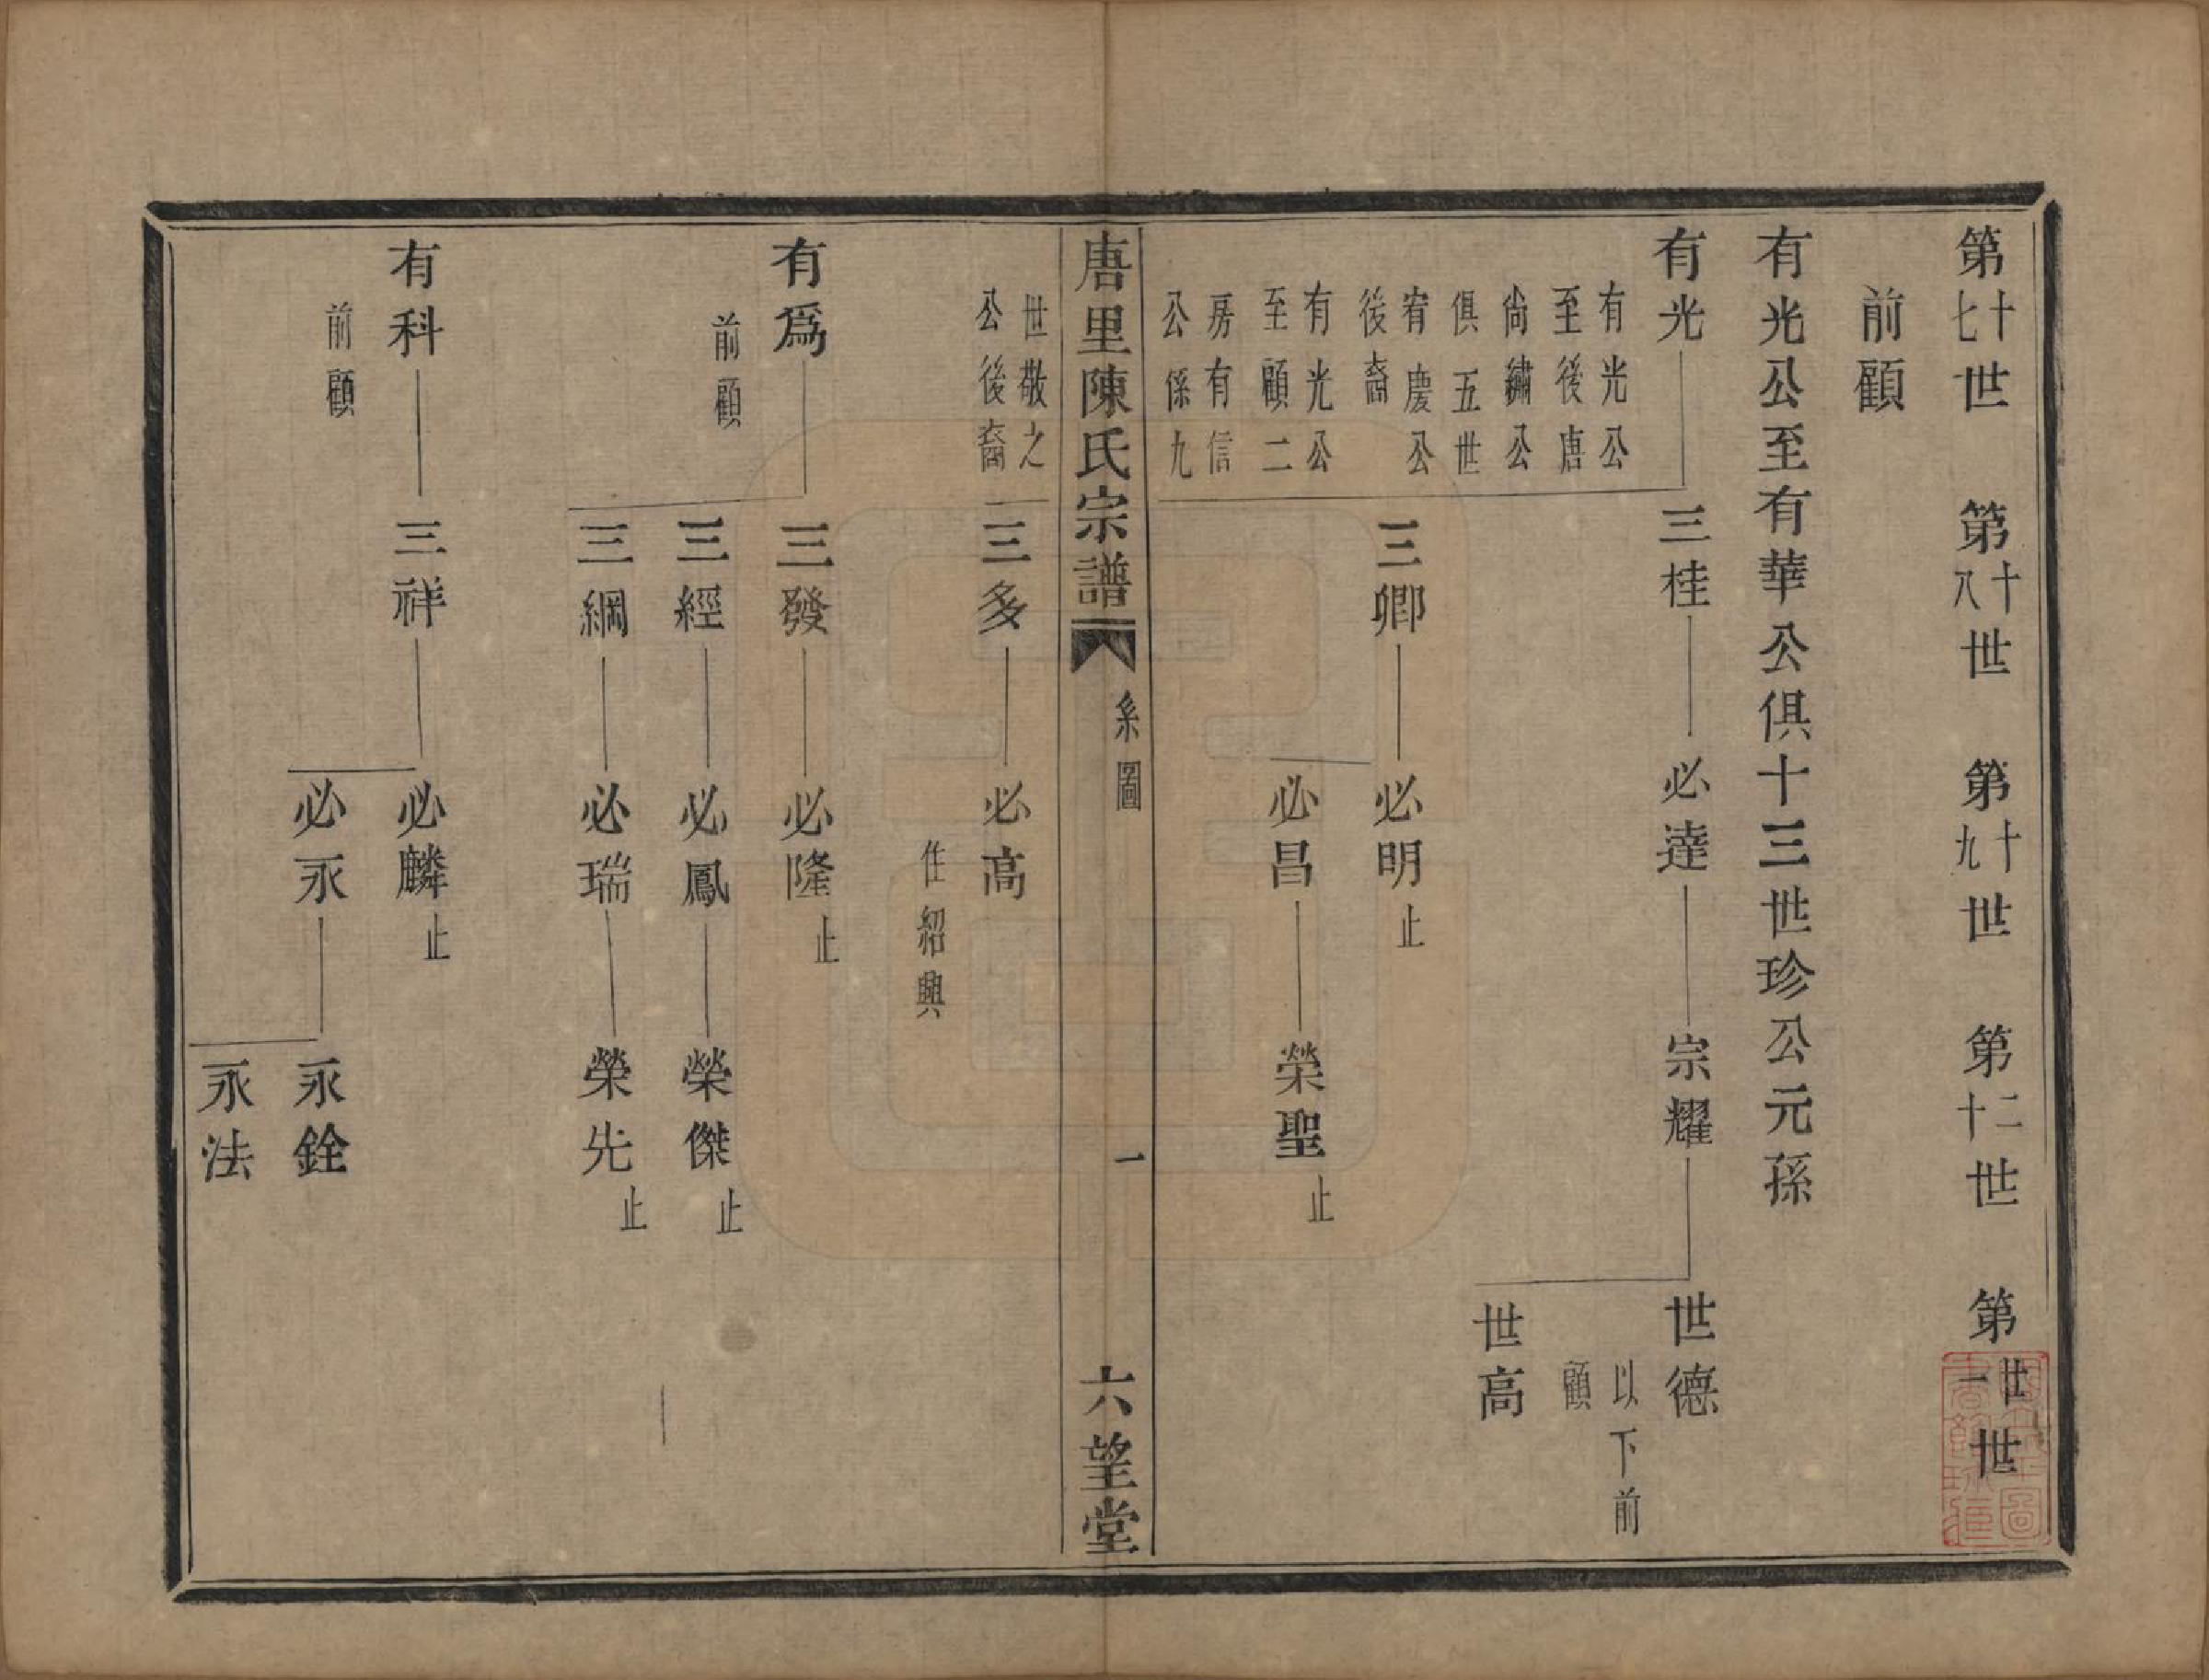 第十七世　第十八世　第十九世　第二十世　第廿一世
前顧
有光公至有華公俱十三世珍公元孫
有光　三桂　必達　宗耀　世德
以下前
顧
有光公
至後唐
尚繡公　世高
俱五世
宥慶公
後裔　三卿　必明　止
有光公
至顧二　必昌　榮聖　止
房有信
公係九
唐里陳氏宗譜　系圖　一　六望堂
世敬之
公後裔　三多　必高
住紹興
有爲　三發　必隆　止
前顧　三經　必鳳　榮傑　止
三綱　必瑞　榮先　止
有科　三祥　必麟　止
前顧　必永　永銓
永法